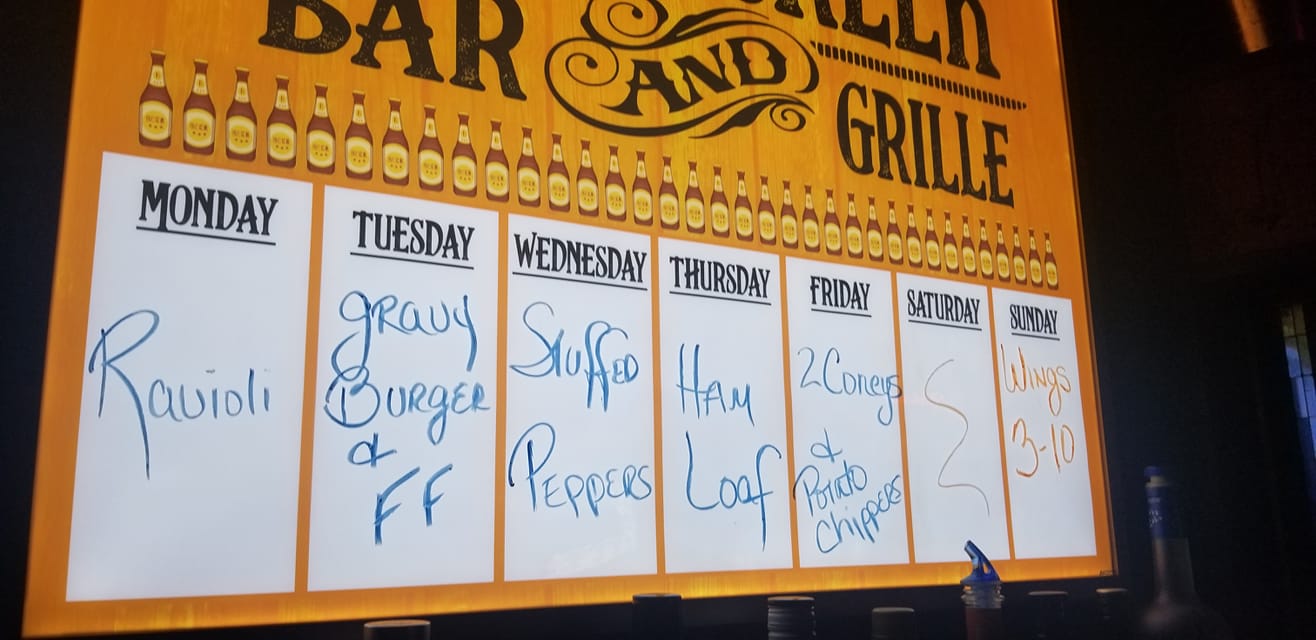 BAR AND
GRILLE
MONDAY
Ravioli
TUESDAY
Gravy
BURGER
&
FF
WEDNESDAY
Stuffed
Peppers
THURSDAY
Ham
Loaf
FRIDAY
2 Coneys
&
Potato
Chippers
SATURDAY
SUNDAY
Wings
3-10